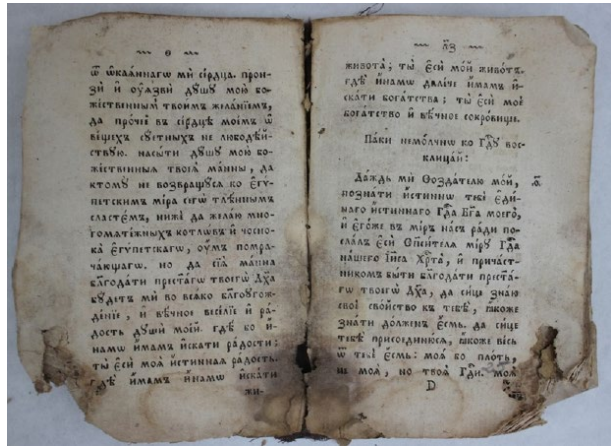 ѳ
ѿ ѡкаѧннагѡ ми́ се́рдца. прон-
зи́ и҆ ᲂу҆ѧзвѝ дꙋ́шꙋ мою̀ бо-
же́ственнымъ твои́мъ жела́нїемъ,
да про́чее въ се́рдцѣ мое́мъ ѿ
ве́щехъ сꙋ́етныхъ не любодѣ́й-
ствꙋю. насы́ти дꙋ́шꙋ мою̀ бо-
же́ственныѧ твоеѧ̀ ма́нны, да
ктомꙋ̀ не возвращꙋ́сѧ ко є҆гѵ́-
петскимъ мі́ра сегѡ̀ тлѣ́ннымъ
сласте́мъ, нижѐ да жела́ю мно-
гомѧте́жныхъ котлѡ́въ и҆ чосно-
ка̀ є҆гѵ́петскагѡ, ᲂу҆́мъ помра-
ча́ющагѡ. но да сїѧ̀ ма́нна
бл҃года́ти прест҃а́гѡ твоегѡ̀ дх҃а
бꙋ́детъ мѝ во всѧ́ко бл҃гоꙋгож-
де́нїе, и҆ вѣ́чное весе́лїе и҆ ра́-
дость дꙋшѝ мое́й. гдѣ́ бо и҆-
на́мѡ и҆́мамъ и҆ска́ти ра́дости:
ты̀ є҆сѝ моѧ̀ и҆́стиннаѧ ра́дость.
гдѣ̀ и҆́мамъ и҆на́мѡ и҆ска́ти
жи-
живота̀; ты̀ є҆сѝ мо́й живо́тъ.
гдѣ̀ и҆на́мѡ дале́че и҆́мамъ и҆-
ска́ти бога́тства; ты̀ є҆сѝ моѐ
бога́тство и҆ вѣ́чное сокро́вище.
Па́ки немо́лчнѡ ко гд҇ꙋ вос-
клица́й:
Да́ждь мѝ Созда́телю мо́й,
позна́ти и҆́стиннѡ тебѐ є҆ди́-
наго и҆́стиннаго гд҇а бг҃а моего̀,
и҆ є҆го́же въ мі́ръ на́съ ра́ди по-
сла́лъ є҆сѝ Спаси́телѧ мі́рꙋ гд҇а
на́шего і҆и҃са хр҇та̀, и҆ прича́ст-
никомъ бы́ти бл҃года́ти прест҃а́-
гѡ твоегѡ̀ дх҃а, да си́це зна́ю
своѐ сво́йство къ тебѣ̀, ꙗ҆́коже
зна́ти до́лженъ є҆́смь. да си́це
тебѣ̀ присоединю́сѧ, ꙗ҆́коже ве́сь
ѿ тебѐ є҆́смь: моѧ̀ бо пло́ть,
не моѧ̀, но твоѧ̀ гд҇и. моѧ̀
D